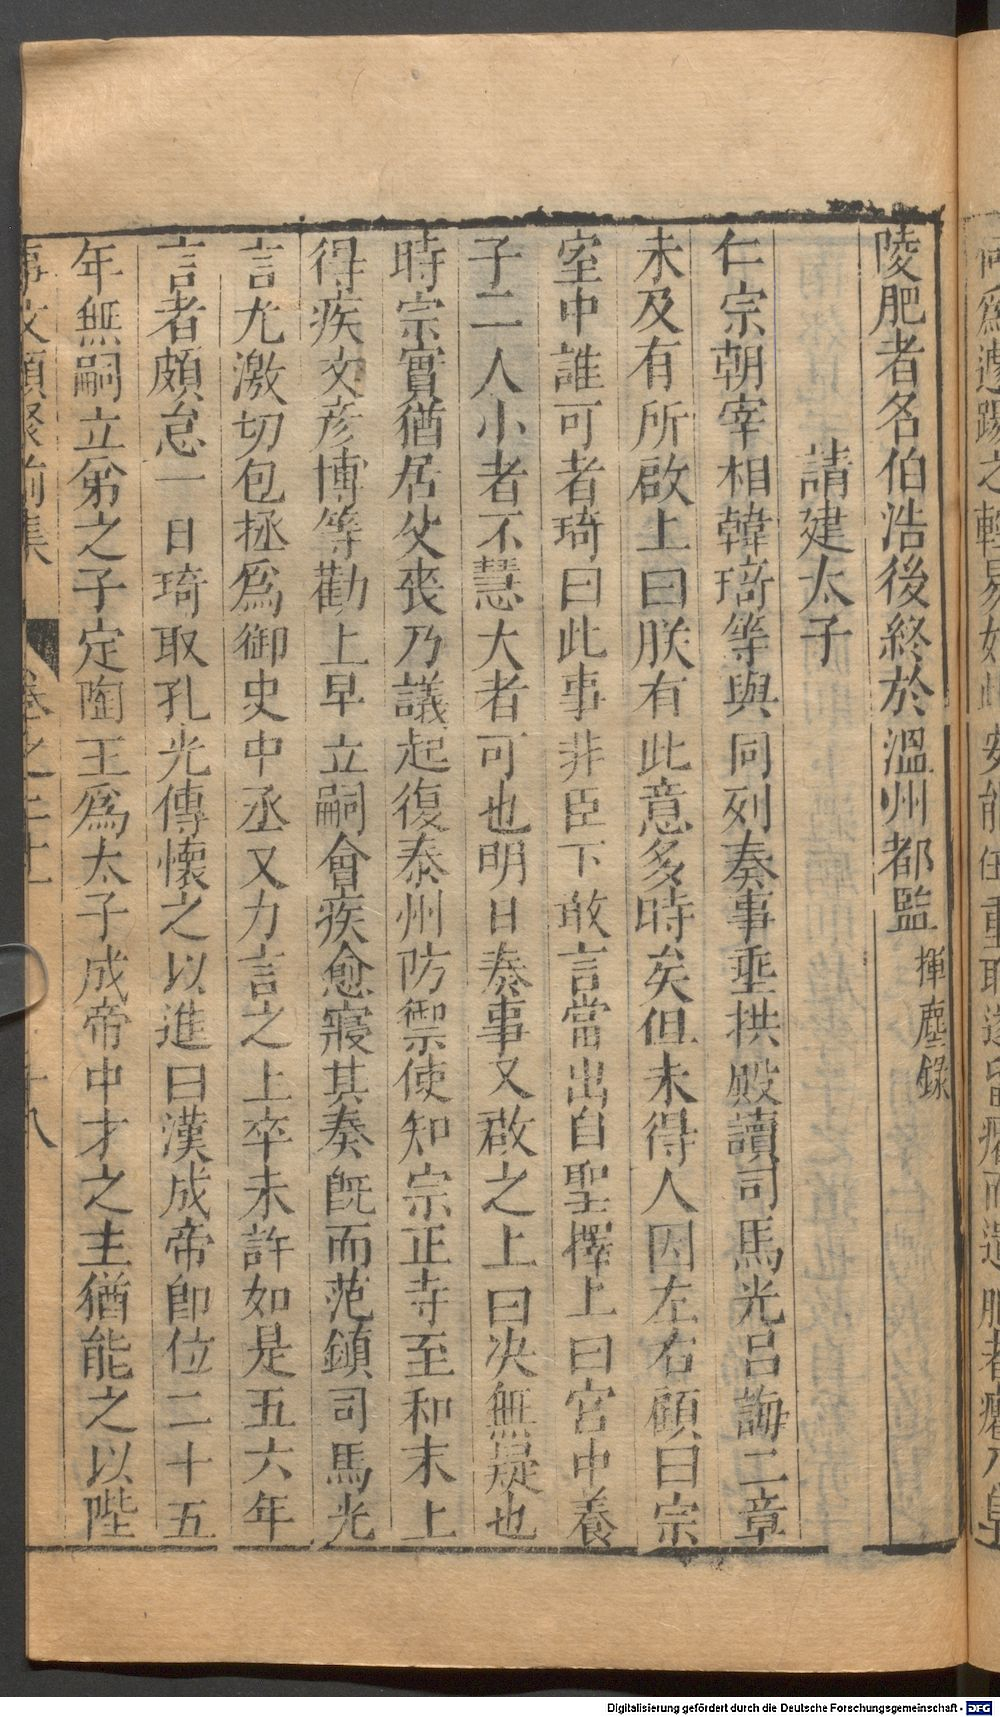 陵肥者名伯浩後終於溫州都監揮塵錄
請建太子
仁宗朝宰相韓琦等與同列奏事垂拱殿讀司馬光呂誨二章
未及有所啟上曰朕有此意多時矣但未得人因左右顧曰宗
室中誰可者琦曰此事非臣下敢言當出自聖擇上曰宮中養
子二人小者不慧大者可也明日奏事又啟之上曰决無疑也
時宗實猶居父喪乃議起復泰州防禦使知宗正寺至和末上
得疾文彥博等勸上早立嗣會疾愈寢其奏旣而范鎮司馬光
言尤激切包拯爲御史中丞又力言之上卒未許如是五六年
言者頗怠一日琦取孔光傳懷之以進曰漢成帝卽位二十五
年無嗣立弟之子定陶王爲太子成帝中才之主猶能之以陛
事文類聚前集 卷之二十 十八
Digitalisierung gefördert durch die Deutsche Forschungsgemeinschaft - DFG